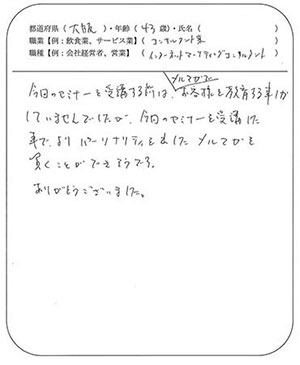 都道府県（ 大阪 ）・年齢（ 43 歳）・氏名（　　　　）
職業【例：飲食業、サービス業】（ コンサルタント業 ）
職種【例：会社経営者、営業】（ インターネットマーケティングコンサルタント ）
メルマガで
今日のセミナーを受講する前は、お客様を教育する事しか
していませんでしたが、今回のセミナーを受講した
事で、よりパーソナリティを出したメルマガを
書くことができそうです。
ありがとうございました。